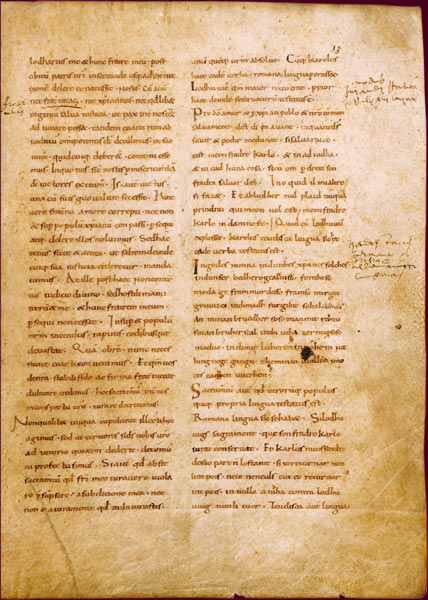 lodharius me & hunc fratrē meū · post
obitū patris n̄ri insectando usq; ad int&
nitionē delere conatus sit · nostis · Cū autē
nec fraternitas · nec xp̄ianitas · nec quodlib&
ingeniū salva iusticia · ut pax int̄ nos ess&
adiuuare poss& · tandem coacti rem ad
iuditiū omnipotentis dī detulimus · ut suo
nutu · quid cuiq; deber& · contenti esse
mus · Inquo nos sic nostis ꝑ misericordiā
dī uictores extitimus · Is autē uictus ·
una cū suis quo ualuit secessit · Hinc
uero fraterno amore correpti · nec non
& sup̄ populū xp̄ianū conpassi · ꝑsequi
atq; delere illos noluimus · Sed hac
tenus sicut & antea · ut saltem deinde
cuiq; sua iusticia cederetur · manda
uimus · At ille post haec non conten
tus iuditio diuino · sed hostili manu
iterū & me · & hunc fratrem meum
ꝑsequi non cessat · Insup̄ & populū
nr̄m incendiis · rapinis · cedibusque
deuastat · Quā obrē · nunc necessi
tate coacti conuenimus · Et q̄m uos
de n̄ra stabili fide ac firma fraternitate
dubitare credimus · hoc sacramentū int̄ nos
in conspectu ur̄o · iurare decreuimus ·
Non qualib& iniqua cupiditate illecti hoc
agimus · sed ut certiores si dī̄ nobis ur̄o
adiutorio quietem dederit · de commu
ni profectu simus · Si autē qd̄ absit
sacramentū qd̄ fratri meo iurauero uiola
re p̄supsero · a subditione mea · nec
non & a iuramento qd̄ mihi iurastis ·
13
unū quēq; ur̄m absoluo · Cūq; karolus
haec eadē uerba · romana lingua ꝑorasset ·
Lodhuuic̄ qm̄ maior natu erat · prior
haec deinde seseruaturū testatus est ·
Pro dō amur & p xp̄ian poblo & nr̄o comun
saluament · dist di en auant · inquantdſ
sauir & podir medunat · si saluaraieo ·
cist meon fradre karlo · & in aiudha ·
& in cad huna cosa · sicū om p dreit son
fradra saluar dist · Ino quid il mialtre
si faz& · Et abludher nul plaid nūquā
prindrai qui meon uol cist · meon fradre
karle in damno sit · Quod cū lodhuuic̄
explesset · karolus teudisca lingua sic hec
eadē uerba testatus est ·
In godes minna indinthes xp̄anes folches
indunser bedhero gealtnissi · fonthese
moda ge frammordesso framso mirgot
geuuizci indimadh furgibit sohaldihes
an minan bruodher soso manmit rehtu
sinan bruher scal inthiu thaz er mig soso
maduo · indimit luheren innohein iut
hing nege gango · zheminan uuillon imo
ces cadhen uuerhen ·
Sacramentū autē qd̄ utrorūq; populus
quiq; propria lingua testatus est ·
Romana lingua sic se hab& · Silodhu
uigs sagrament · que son fradre karlo
iurat conseruat · Et karlus meossendra
desuo partn̄ lostanit · si io returnar non
lint pois · neio neneuls cui eo returnar
int pois · in nulla aiudha contra lodhu
uuig nunli iuer · Teudisca autē lingua ·